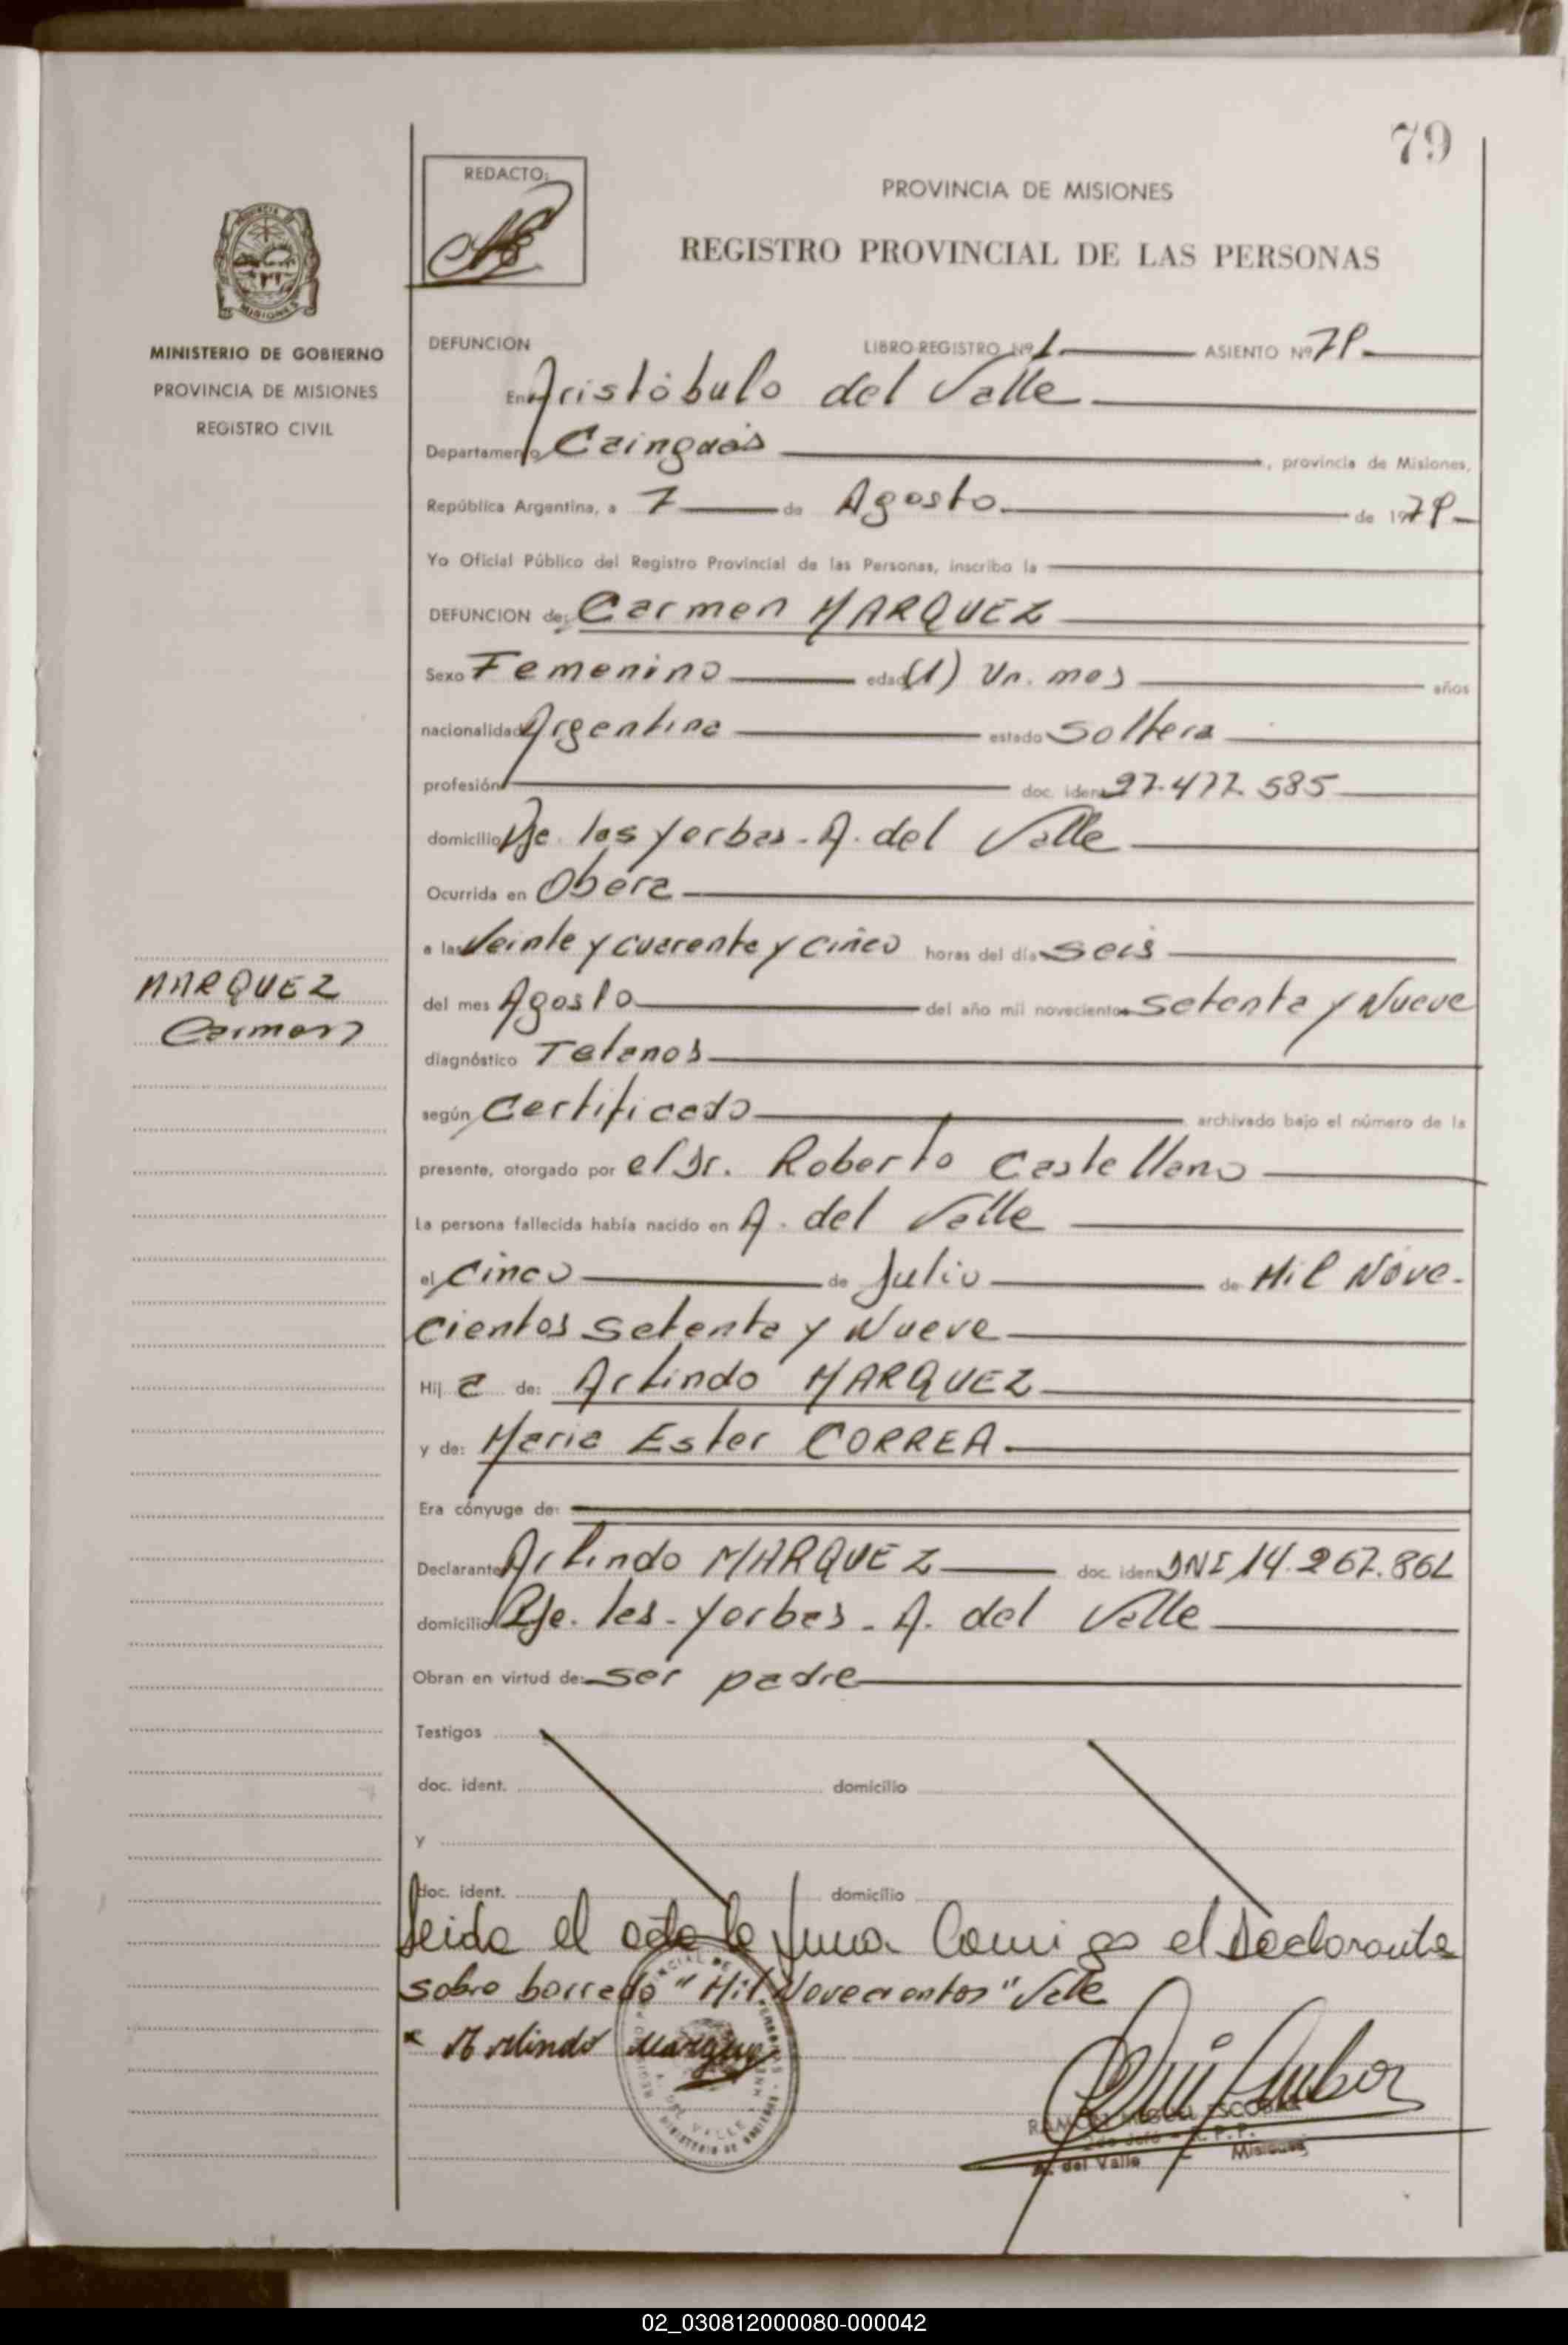 79
REDACTO:
PROVINCIA DE MISIONES
REGISTRO PROVINCIAL DE LAS PERSONAS
MINISTERIO DE GOBIERNO
PROVINCIA DE MISIONES
REGISTRO CIVIL
DEFUNCION LIBRO-REGISTRO Nº 1 ASIENTO Nº 79
En Aristóbulo del Valle
Departamento Cainguás, provincia de Misiones,
República Argentina, a 7 de Agosto de 1979
Yo Oficial Público del Registro Provincial de las Personas, inscribo la
DEFUNCION de: Carmen MARQUEZ
Sexo Femenino edad (1) Un. mes años
nacionalidad Argentina estado Soltera
profesión doc. ident. 27.477.585
domicilio Pje. las Yerbas - A. del Valle
Ocurrida en Oberá
a las Veinte y cuarenta y cinco horas del día Seis
MARQUEZ
Carmen
del mes Agosto del año mil novecientos Setenta y Nueve
diagnóstico Tetanos
según Certificado archivado bajo el número de la
presente, otorgado por el Dr. Roberto Castellano
La persona fallecida había nacido en A. del Valle
el Cinco de Julio de Mil Nove-
cientos Setenta y Nueve
Hij a de: Arlindo MARQUEZ
y de: Maria Ester CORREA.
Era cónyuge de:
Declarante Arlindo MARQUEZ doc. ident. DNI 14.267.862
domicilio Pje. las - Yerbas - A. del Valle
Obran en virtud de: ser padre
Testigos
doc. ident. domicilio
y
doc. ident. domicilio
Leida el acta la firma Conmigo el Declarante
sobre borrado "Mil Novecientos" Vale
Arlindo Marquez
RAMON MIGUEL ESCOBAR
A. del Valle Misiones
02_030812000080-000042